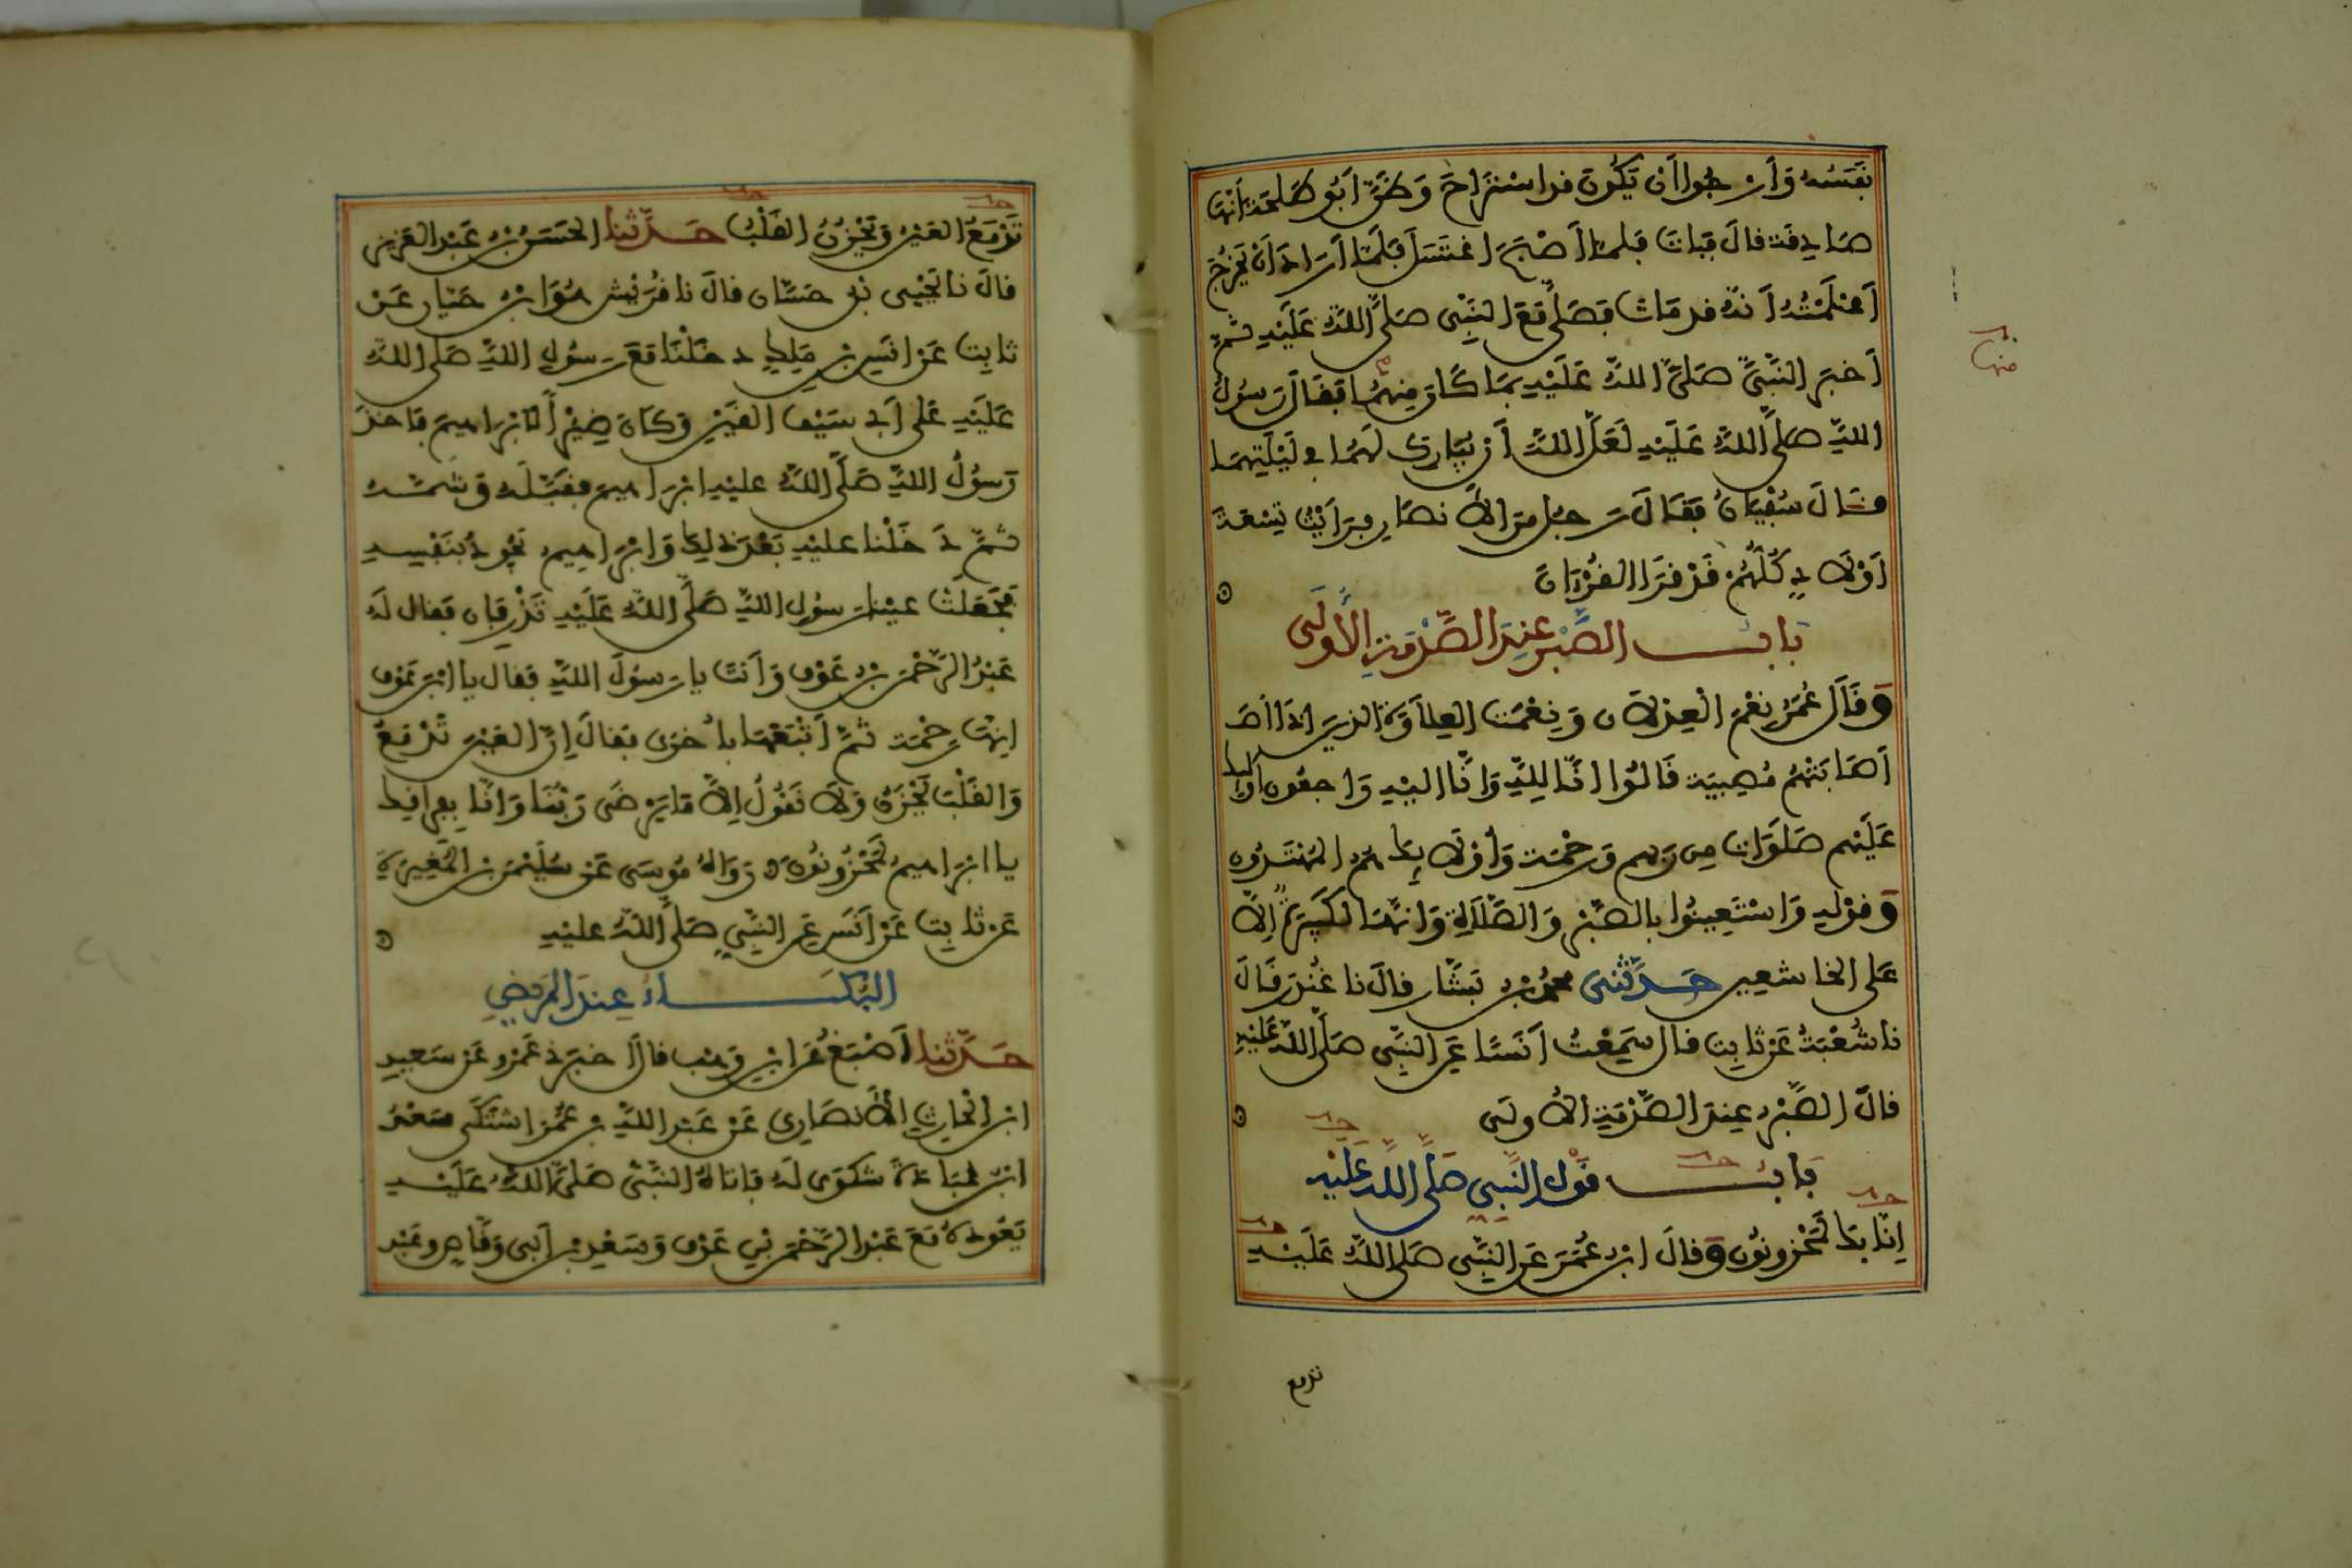 نَفَسُه وَأرْجُوا أنْ يَكُونَ قد اسْتَرَاحَ وَظَنَّ أبُو طَلحَةَ أنَّهَا
صَادِقَة قالَ فَبَاتَ فلمّا أصْبَحَ اغْتَسَلَ فَلَمَّا أرَادَ أنْ يَخْرُجَ
أعْلَمَتْهُ أنَّهُ قد مَاتَ فَصَلَّى مَعَ النَّبِي صَلَّى اللَّهُ عَلَيْهِ ثُمَّ
أخبَرَ النَّبِيَّ صَلَّى اللَّهُ عَلَيْهِ بِمَا كَانَ مِنهُمَا فَقَالَ رَسُولُ
منها
اللَّهِ صَلَّى اللَّهُ عَلَيْهِ لَعَلَّ اللَّهَ أنْ يُبَارِكَ لَهُمَا فِي لَيْلَتِهِمَا
قَالَ سُفْيَانُ فَقَالَ رَجُل مِنَ الأنصَارِ فَرَأيْتُ تِسْعَةَ
أوْلَادٍ كُلُّهُمْ قَدْ قَرَأ القُرْءَانَ
بَابُ الصَّبْرِ عِنْدَ الصَّدْمَةِ الأُولَى
وَقَالَ عُمَرُ نِعْمَ الْعِدْلَان وَنِعْمَت العِلاَوَة الذِينَ إذَا أص
أصَابَتْهُمْ مُصِيبَة قَالُوا انَّا لِلَّهِ وَانَّا الَيْهِ رَاجِعُون أولَيِكَ
عَلَيْهِم صَلَوَات مِن رَبِّهِم وَرَحْمَة وَأوْلَايِكَ هُمُ المُهْتَدُون
وَقوْلِهِ وَاسْتَعِينُوا بِالصَّبْرِ وَالصَّلاَةِ وَانَّهَا لَكَبِيرَةٌ إلاَّ
عَلَى الخَاشعِين حَدَّثَنِي محمدُ بْنُ بَشَّار قالَ نا غُنْدَر قَالَ
نا شُعْبَةُ عَنْ ثابِت قالَ سَمِعْتُ أنَسًا عَنِ النَّبِّي صَلَّى اللَّهُ عَلَيْهِ
قالَ الصَّبْرُ عِندَ الصَّدْمَةِ الأُولَى
بَابُ قَوْل النَّبِي صَلَّى اللَّهُ عَلَيْهِ
إنَّا بِكَ لَمَحْزُونُون وَقالَ ابْنُ عُمَرَ عَنِ النَّبِي صَلى اللَّهُ عَلَيْهِ
تدمع
تَدْمَعُ العَيْنُ وَيَحْزَنُ القَلْبُ حَدَّثَنا الحَسَنُ بْنُ عَبْدِ العَزِيزِ
قالَ نا يَحْيَى بْنُ حَسَّان قالَ نا قُرَيْش هُوَ ابْنُ حَيَّان عَنْ
ثابِت عَنْ أنَسِ بْنِ مَلِكٍ دَخَلْنَا مَعَ رَسُولِ اللَّهِ صَلى اللَّهُ
عَلَيْهِ عَلَى أبِي سَيْف القَيْنِ وَكَانَ ضِيرًا لابْرَاهِيمَ فَأخَذَ
رَسُولُ اللَّهِ صَلَّى اللَّهُ عليْهِ ابْرَاهِيمَ فقَبَّلَهُ وَشَمَّهُ
ثُمَّ دَخَلْنا عليْهِ بَعْدَ ذلِكَ وَابْرَاهِيمُ يَجُودُ بنَفْسِهِ
فَجَعَلَتْ عيْنا رَسُولِ اللَّهِ صَلَّى اللَّهُ عَلَيْهِ تَذْرِفَان فَقال لَهُ
عَبْدُ الرَّحْمَنِ بْنُ عَوْف وَأنتَ يا رَسُولَ اللَّهِ فقال يا ابْنَ عَوْف
إنهَا رَحْمَة ثُمَّ أتْبَعَهَا بأُخرَى فقالَ إنَّ العَيْنَ تَدْمَعُ
وَالقَلْبَ يَحْزَنُ وَلاَ نَقُولُ إلاَّ مَا يَرْضَى رَبُّنَا وَانَّا بِفِرَاقِكَ
يا ابْرَاهِيمُ لَمَحْزُونُون رَوَاهُ مُوسَى عَنْ سُلَيْمَنَ بْنِ المُغِيرَةِ
عَنْ ثابِت عَنْ أنَس عَنِ النَّبِيِ صَلَّى اللَّهُ عليْهِ
البُكَاءُ عِندَ المَرِيضِ
حَدَّثَنا أصْبَغُ عَنِ ابْنِ وَهْب قالَ أخبَرَنِي عَمْرو عَنْ سَعِيدِ
ابْنِ الحَارِثِ الأنصَارِي عَنْ عَبْدِ اللَّهِ بْنِ عُمَرَ اشتَكَى سَعْدُ
ابْنُ عُبَادَةَ شكوَى لَهُ فأتَاهُ النَّبِّي صَلَّى اللَّهُ عَلَيْهِ
يَعُودُهُ مَعَ عَبْدِ الرَّحْمَنِ بْنِ عَوْف وَسَعْدِ بْنِ أبِي وَقَّاص وعَبْدِ